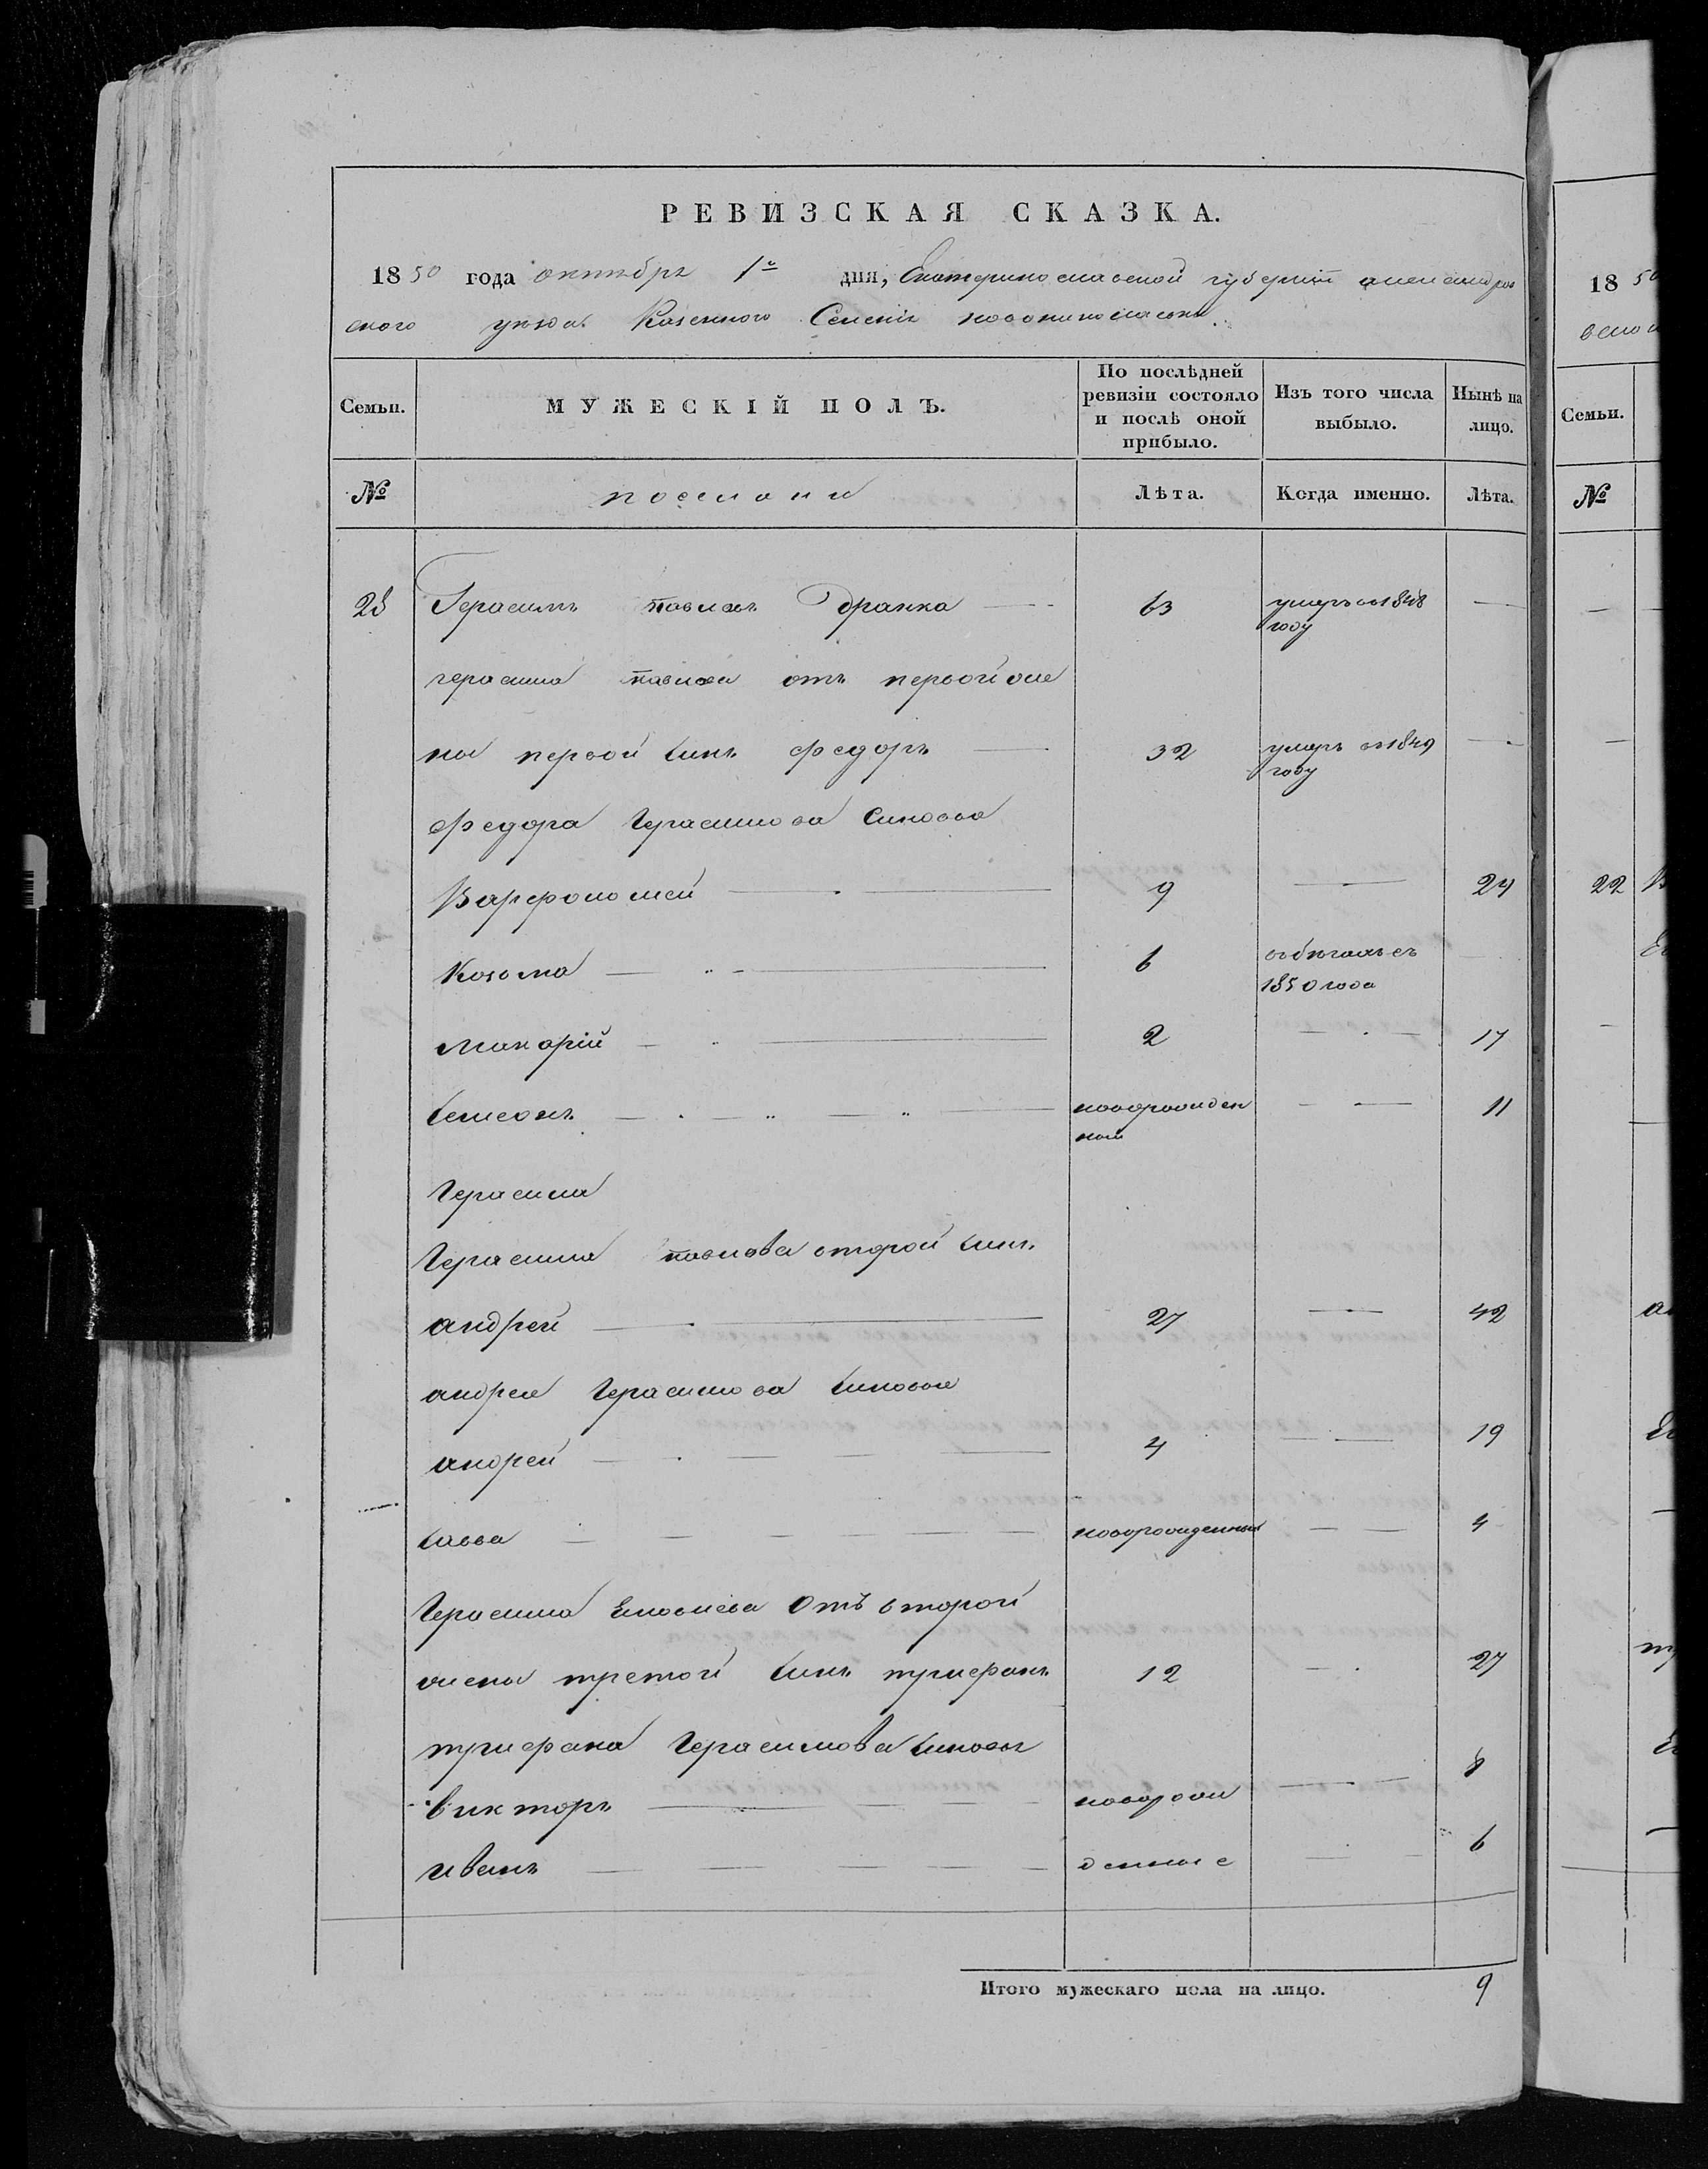 РЕВИЗСКАЯ СКАЗКА.
1850 года октября 1го дня, Екатеринославской губернии александров
ского уезда Казенного Селения новониколаевки
Семьи. МУЖЕСКІЙ ПОЛЪ. По послѣдней ревизіи состояло и послѣ оной прибыло. Изъ того числа выбыло. Нынѣ на лицо.
№ поселяни Лѣта. Когда именно. Лѣта.
23 Герасимъ павловъ Дранка 63 умеръ в 1848 году
герасима павлова отъ первой же
ны первой синъ федоръ 32 умеръ в 1849 году
федора Герасимова Синовья
Варфоломей 9 24
Козьма 6 въ бегахъ съ 1850 года
Макарій 2 17
Симеонъ новорожден ной 11
Герасима
Герасима павлова второй синъ
андрей 27 42
андрея Герасимова Синовья
андрей 4 19
Савва новорожденный 4
Герасима отъ второй
жены третой Синъ трифонъ 12 27
трифона Герасимова Синовья
викторъ новорож 8
иванъ денные 6
Итого мужескаго пола на лицо. 9
18 50
Семьи.
№
22